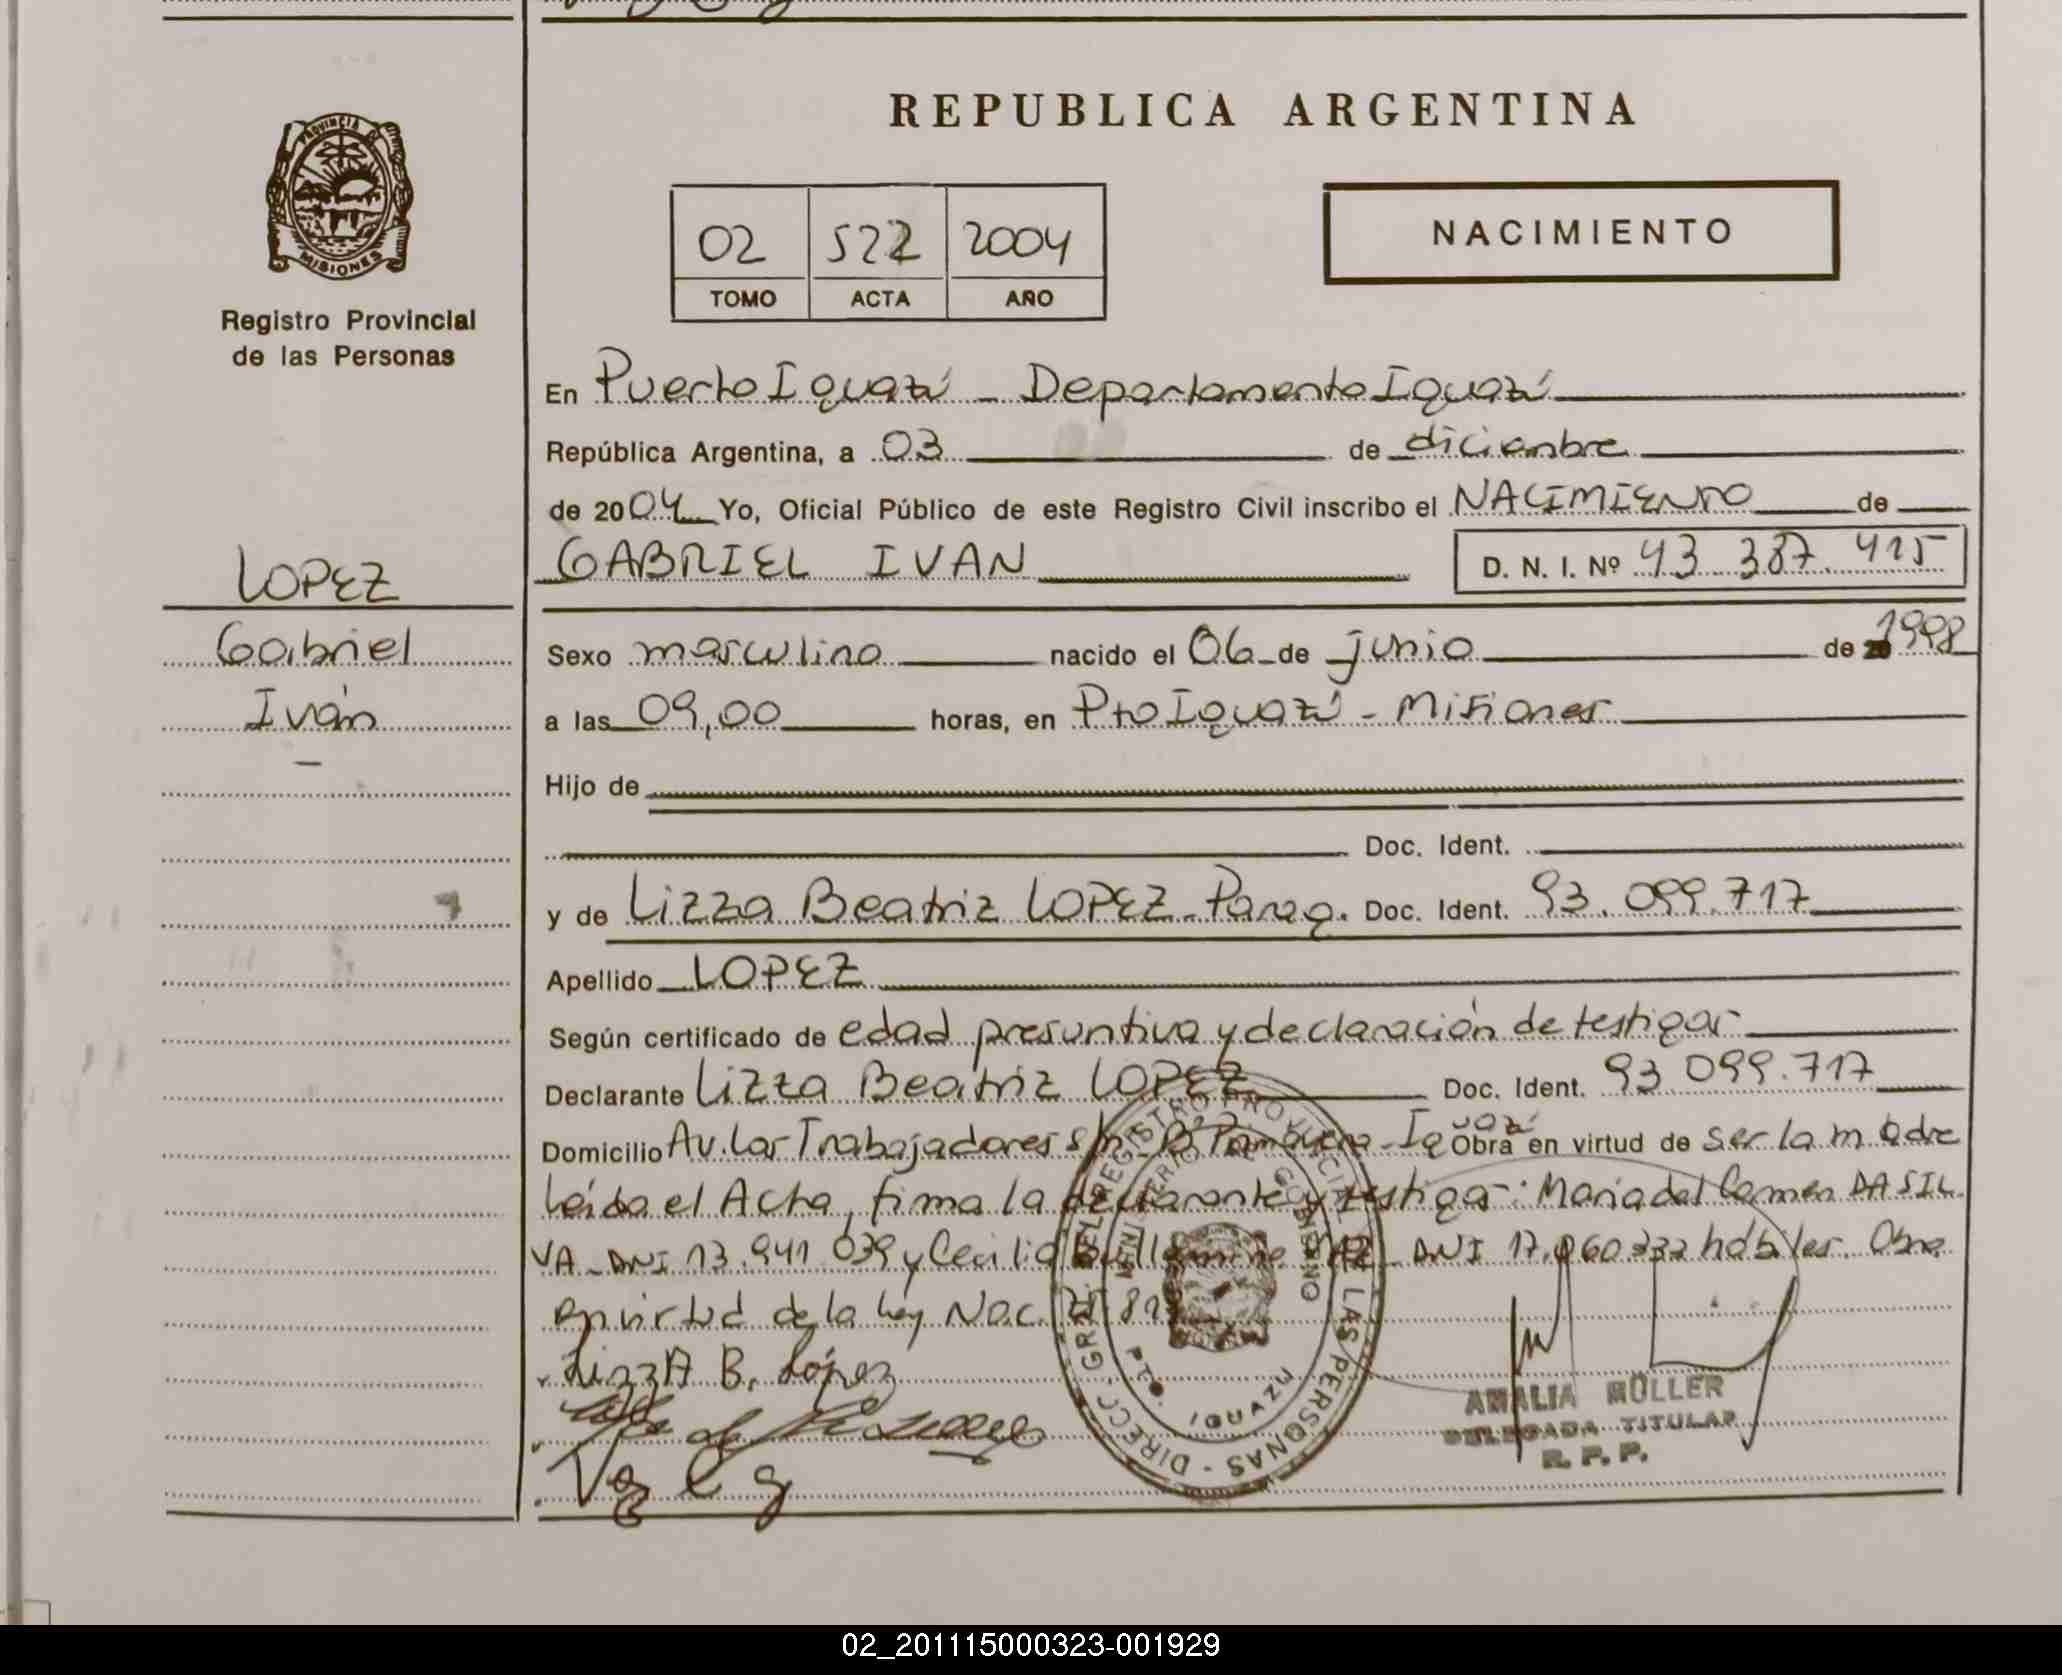 PROVINCIA DE
MISIONES
Registro Provincial
de las Personas
LOPEZ
Gabriel
Iván
REPUBLICA ARGENTINA
02 522 2004
TOMO ACTA AÑO
NACIMIENTO
En Puerto Iguazú - Departamento Iguazú
República Argentina, a 03 de diciembre
de 2004 Yo, Oficial Público de este Registro Civil inscribo el NACIMIENTO de
GABRIEL IVAN D. N. I. Nº 43 387.415
Sexo masculino nacido el 06 de junio de 1998
a las 09,00 horas, en Pto Iguazú - Misiones
Hijo de
Doc. Ident.
y de Lizza Beatriz LOPEZ - Parag. Doc. Ident. 93.099.717
Apellido LOPEZ
Según certificado de edad presuntiva y declaración de testigos
Declarante Lizza Beatriz LOPEZ Doc. Ident. 93 099.717
Domicilio Av. Los Trabajadores s/n - B. Primavera - Iguazú Obra en virtud de ser la madre
leída el Acta, firma la declarante y testigos: Maria del Carmen DA SIL
VA - DNI 13.941 039 y Cecilia DNI 17.060 hábiles. Obra
en virtud de la ley Nac.
LizzA B. López
DIRECC. GRAL. DEL REGISTRO PROVINCIAL DE LAS PERSONAS
MINISTERIO DE GOBIERNO
PTO. IGUAZU
AMALIA MÜLLER
DELEGADA TITULAR
R. P. P.
02_201115000323-001929